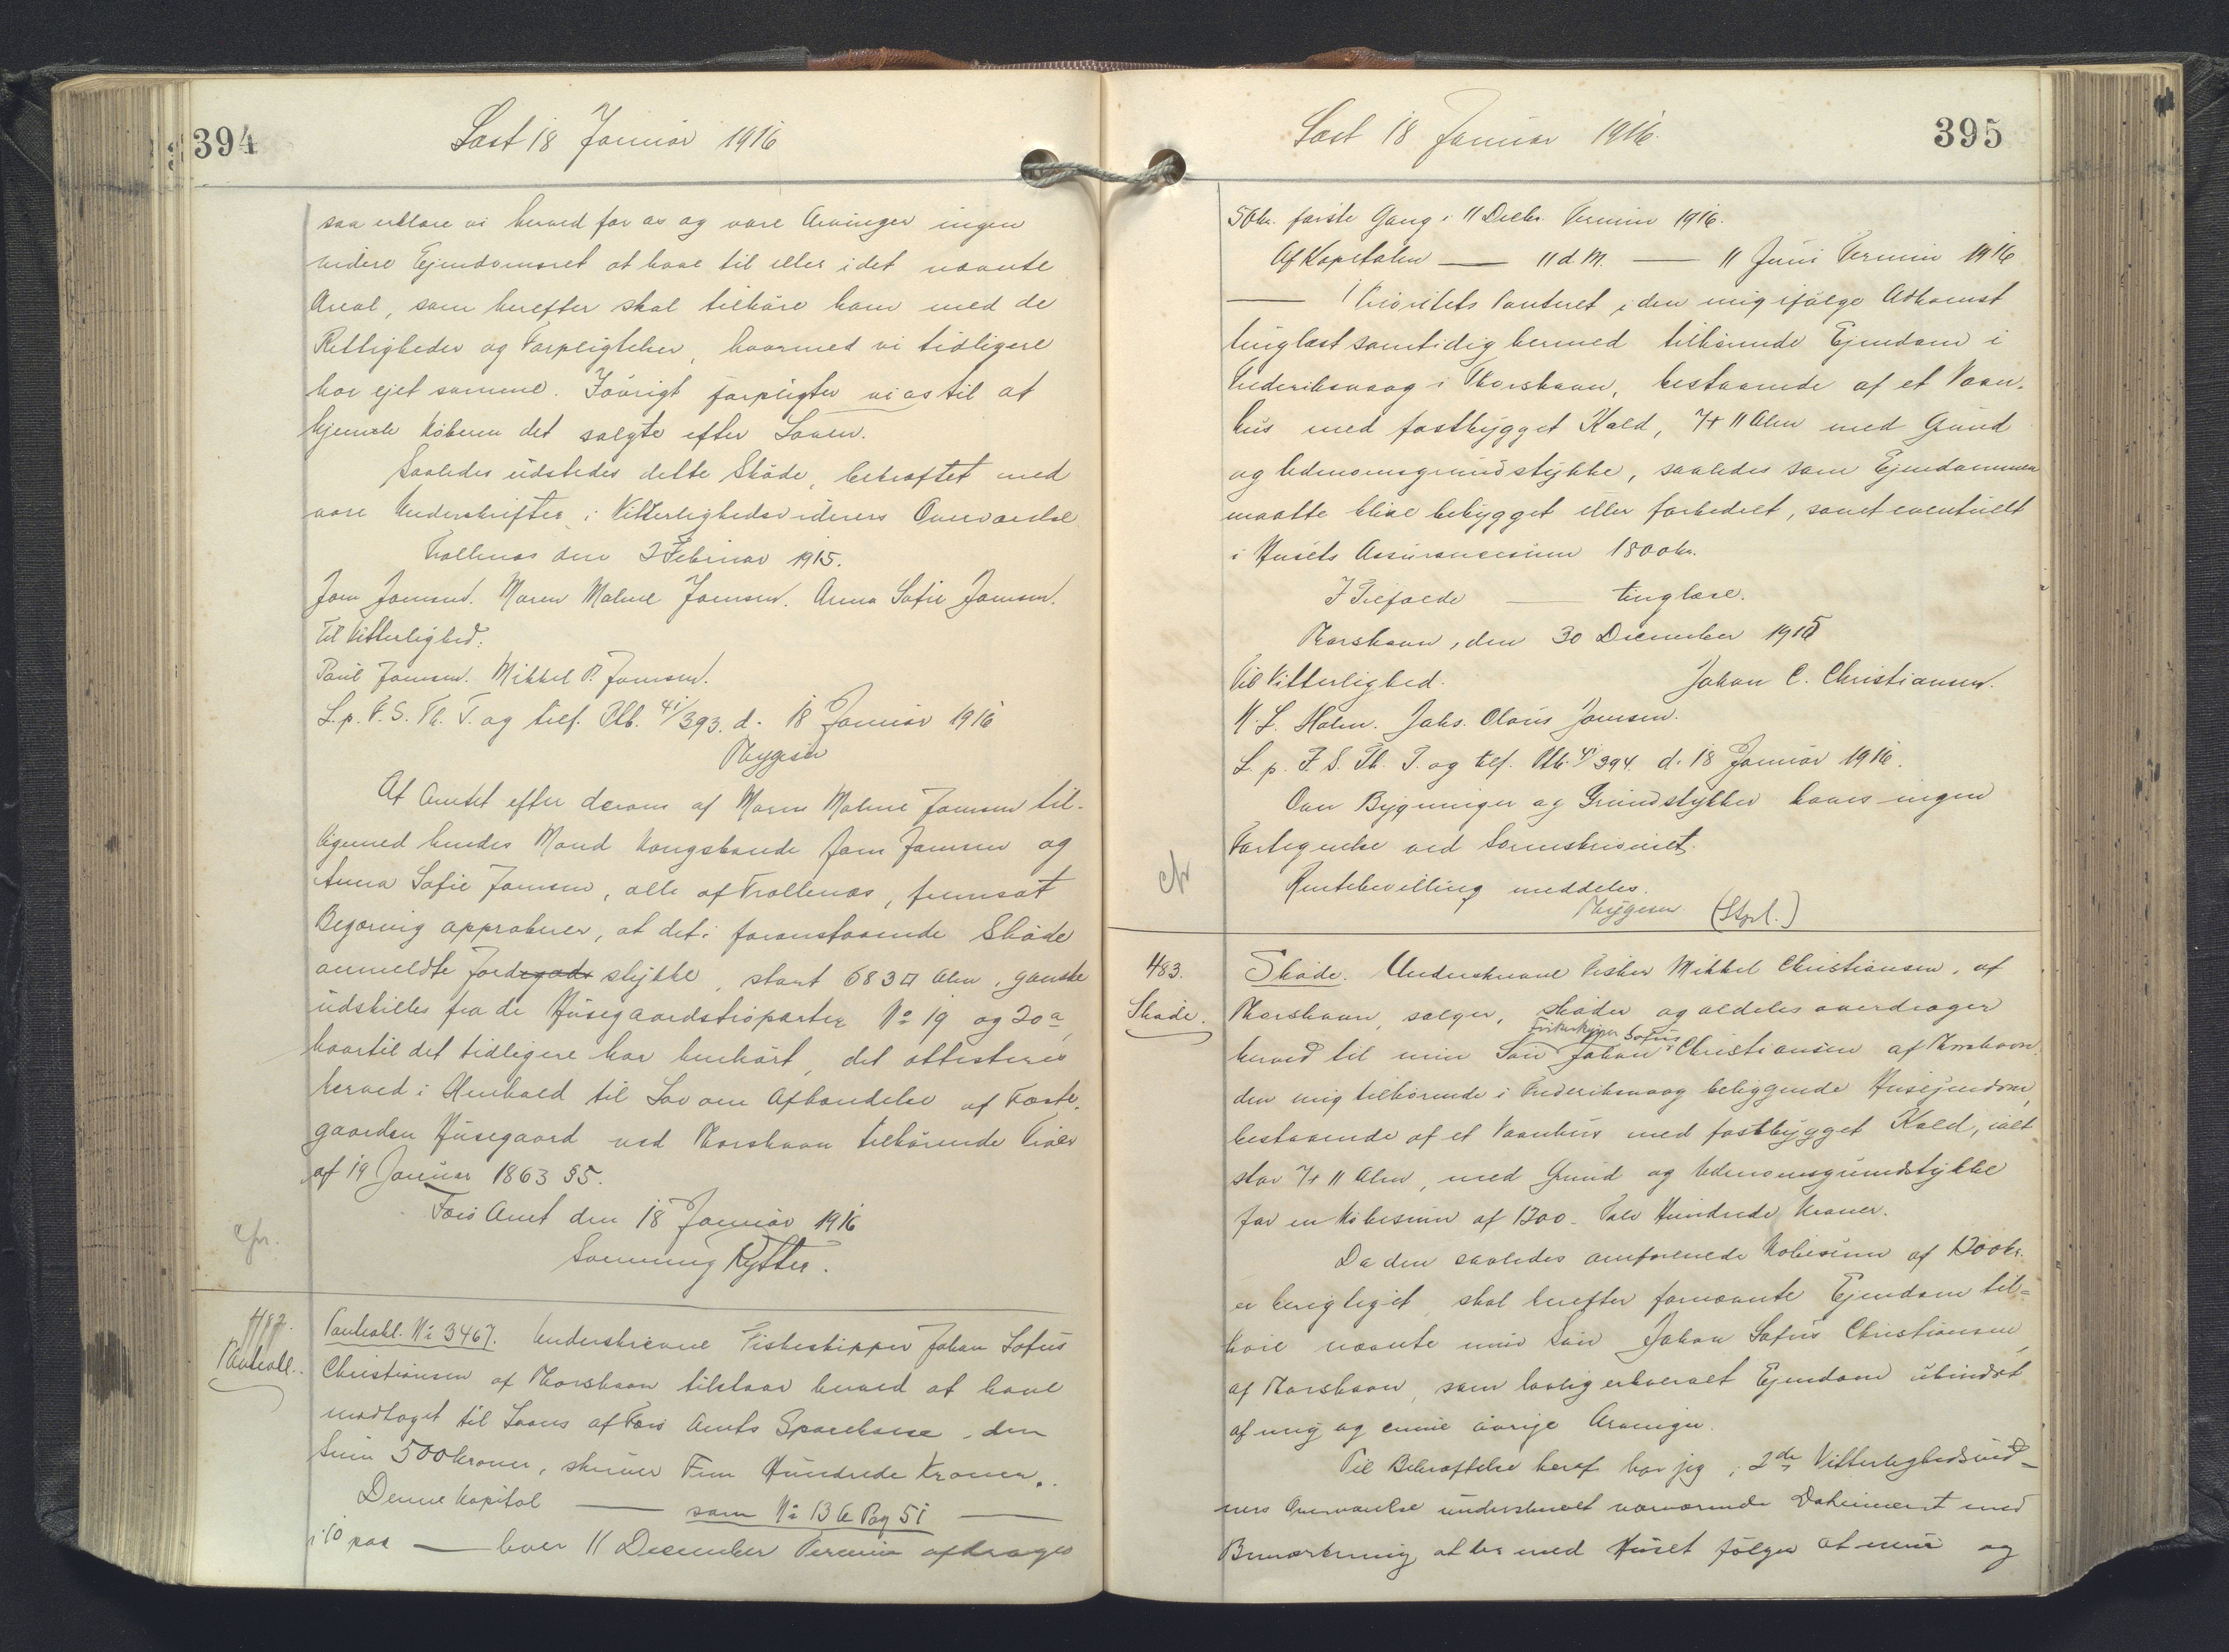 394
Læst 18 Januar 1916
saa erklære vi herved for os og vore Arvinger ingen
videre Ejendomsret at have til eller i det nævnte
Areal, som herefter skal tilhøre ham med de
Rettigheder og Forpligtelser, hvormed vi tidligere
har ejet samme. Iøvrigt forpligter vi os til at
hjemle Køberen det solgte efter Loven.
Saaledes udstedes dette Skøde, bekræftet med
vore Underskrifter i Vitterlighedsvidners Overværelse
Trøllenæs den 2 Februar 1915.
Joen Joensen. Maren Malene Joensen. Anna Sofie Joensen.
Til Vitterlighed:
Poul Joensen. Mikkel P. Joensen.
L. p. F. S. Th. T. og tilf. Ptb. 41/393. d. 18 Januar 1916
Thygesen
At Amtet efter derom af Maren Malene Joensen til-
ligemed hendes Mand Kongsbonde Joen Joensen og
Anna Sofie Joensen, alle af Trøllenæs, fremsat
Begæring approberer, at det i foranstaaende Skøde
anmeldte Jordegods stykke, stort 683 □ Alen, ganske
udskilles fra de Husegaardstroparter No 19 og 20a,
hvortil det tidligere har henhørt, det attesteres
herved i Henhold til Lov om Afhændelse af Fæste-
gaarden Husegaard ved Thorshavn tilhørende Træer
af 19 Januar 1863 §5.
Færø Amt den 18 Januar 1916
Svenning Rytter.
chr.
482.
Panteobl.
Panteobl. No 3467. Underskrevne Fiskeskipper Johan Sofus
Christiansen af Thorshavn tilstaar herved at have
modtaget til Laans af Færø Amts Sparekasse, den
Sum 500 kroner, skriver Fem Hundrede Kroner.
Denne Kapital — som No 136 Pag 51 —
i 10 paa — hver 11 December Termin afdrages
395
Læst 18 Januar 1916.
50 kr. første Gang i 11 Decbr. Termin 1916.
Af Kapitalen — 11 d. M. — 11 Juni Termin 1916
— 1 Prioritets Panteret i den mig ifølge Adkomst
tinglæst samtidig hermed tilhørende Ejendom i
Frederiksvaag i Thorshavn, bestaaende af et Vaan-
hus med fastbygget Kæld, 7 + 11 Alen med Grund
og Udenomsgrundstykke, saaledes som Ejendommen
maatte blive bebygget eller forbedret, samt eventuelt
i Husets Assurancesum 1800 kr.
I Tilfælde — tinglæse.
Thorshavn, den 30 December 1915
Til Vitterlighed. Johan C. Christiansen.
H. L. Holm. Johs. Olavus Joensen.
L. p. F. S. Th. T. og tilf. Ptb. 41/394. d. 18 Januar 1916.
Om Bygninger og Grundstykker haves ingen
Fortegnelse ved Sorenskriveriet.
Hentebevilling meddeles.
Thygesen (Stpl.)
chr
483.
Skøde.
Skøde. Underskrevne Fisker Mikkel Christiansen, af
Thorshavn, sælger, skøder og aldeles overdrager
Fiskeskipper Sofus
herved til min Søn Johan Christiansen af Thorshavn.
den mig tilhørende i Frederiksvaag beliggende Husejendom,
bestaaende af et Vaanhus med fastbygget Kæld, ialt
stor 7 + 11 Alen, med Grund og Udenomsgrundstykke
for en Købesum af 1200 - Tolv Hundrede Kroner.
Da den saaledes omforenede Købesum af 1200 kr.
er berigtiget, skal herefter fornævnte Ejendom til-
høre nævnte min Søn Johan Sofus Christiansen,
af Thorshavn, som lovlig erhvervet Ejendom uhindret
af mig og mine øvrige Arvinger.
Til Bekræftelse heraf har jeg i 2de Vitterlighedsvid-
ners Overværelse underskrevet nærværende Dokument med
Bemærkning at der med Huset følger at mur og